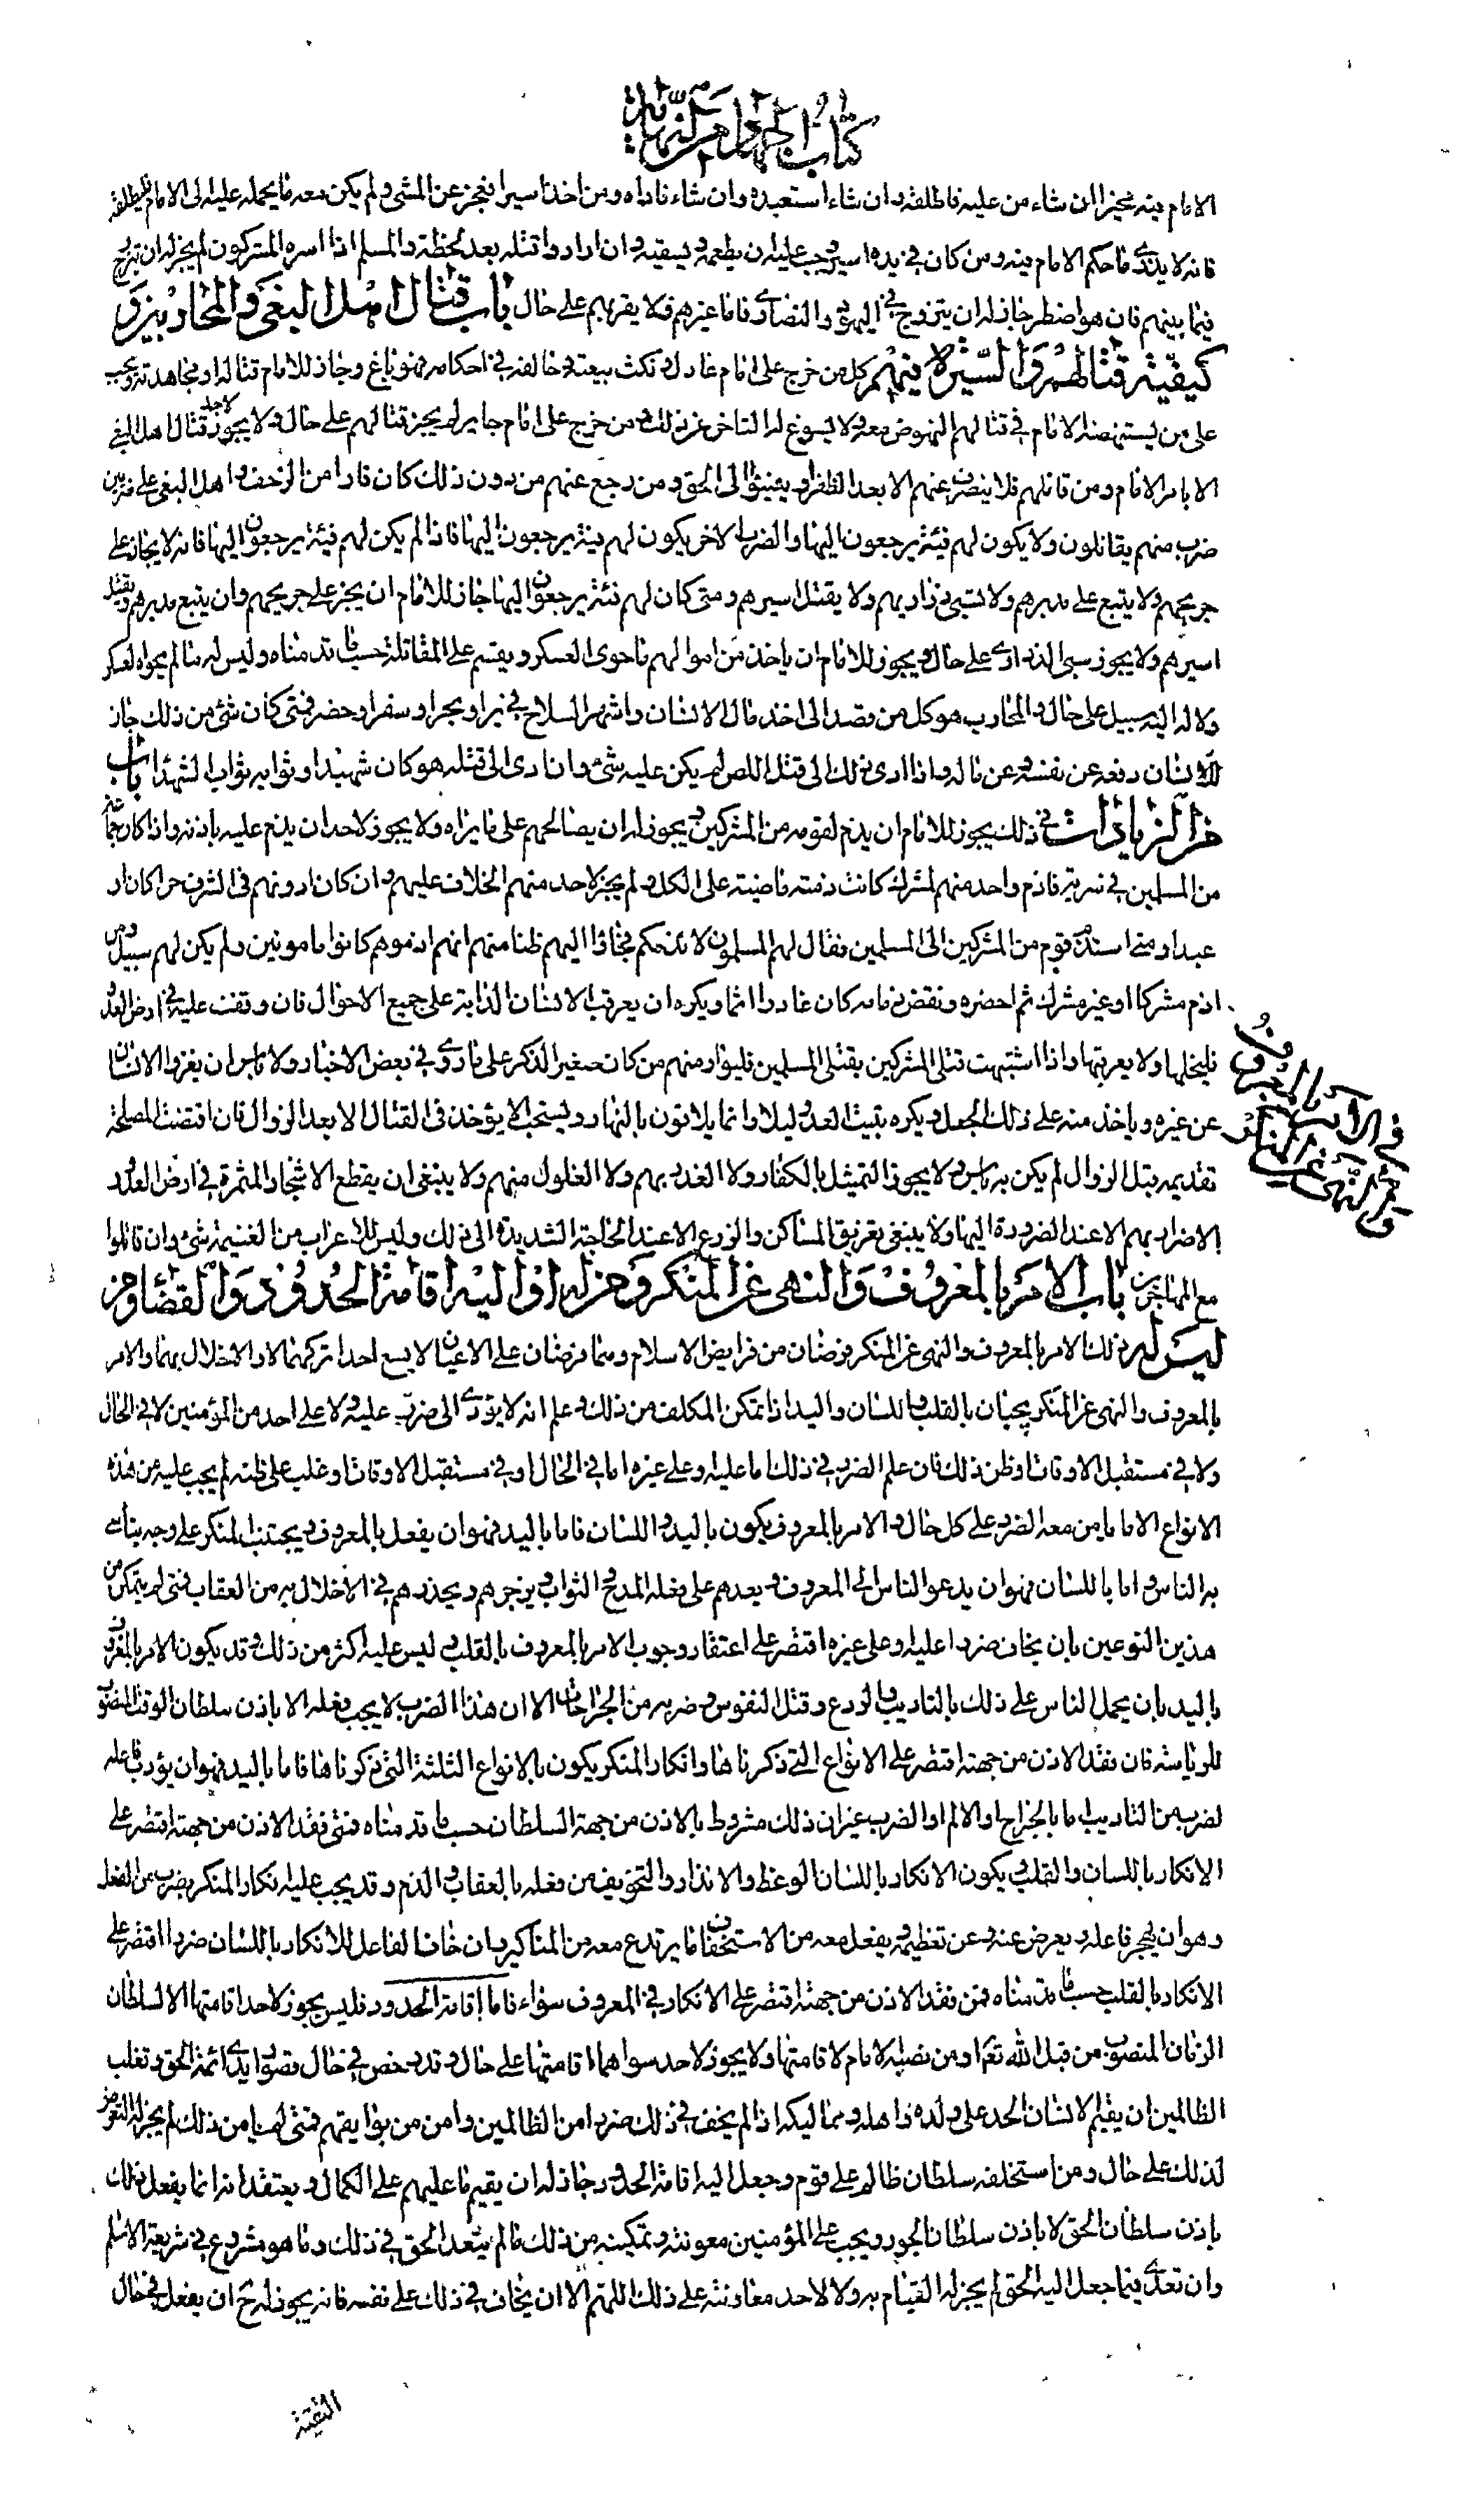 كتاب الجهاد من النهاية
الامام فيه مخير ان شاء من عليه فاطلقه وان شاء استعبده وان شاء فاداه ومن اخذ اسيرا فعجز عن المشى ولم يكن معه ما يحمله عليه الى الامام فليطلقه
فانه لا يدرى ما حكم الامام فيه ومن كان في يده اسير وجب عليه ان يطعمه ويسقيه وان ارادوا قتله بعد لحظة والمسلم اذا اسره المشركون لم يجز له ان يتزوج
فيما بينهم فان هو اضطر جاز له ان يتزوج في اليهود والنصارى فاما غيرهم فلا يقربهم على حال باب قتال اهل البغى والمحاربين و
كيفية قتالهم والسيرة فيهم كل من خرج على امام عادل ونكث بيعته وخالفه في احكامه فهو باغ وجاز للامام قتاله ومجاهدته ويجب
على من يستنهضه الامام في قتالهم النهوض معه ولا يسوغ له التاخر عن ذلك ومن خرج على امام جاير لم يجز قتالهم على حال ولا يجوز لاحد قتال اهل البغى
الا بامر الامام ومن قاتلهم فلا ينصرف عنهم الا بعد الظفر او يفيئوا الى الحق ومن رجع عنهم من دون ذلك كان فارا من الزحف واهل البغى على ضربين
ضرب منهم يقاتلون ولا يكون لهم فئة يرجعون اليها والضرب الاخر يكون لهم فئة يرجعون اليها فاذا لم يكن لهم فئة يرجعون اليها فانه لا يجاز على
جريحهم ولا يتبع على مدبرهم ولا تسبى ذراريهم ولا يقتل اسيرهم ومتى كان لهم فئة يرجعون اليها جاز للامام ان يجيز على جريحهم وان يتبع مدبرهم ويقتل
اسيرهم ولا يجوز سبى الذرارى على حال ويجوز للامام ان ياخذ من اموالهم ما حوى العسكر ويقسم على المقاتلة حسب ما قدمناه وليس له ما لم يحواه العسكر
ولا له اليه سبيل على حال والمحارب هو كل من قصد الى اخذ مال الانسان واشهر السلاح في بر او بحر او سفر او حضر فمتى كان شئ من ذلك جاز
للانسان دفعه عن نفسه وعن ماله واذا ادى ذلك الى قتل اللص لم يكن عليه شئ وان ادى الى قتله هو كان شهيدا وثوابه ثواب الشهداء باب
من الزيادات في ذلك يجوز للامام ان يذم لقوم من المشركين ويجوز له ان يصالحهم على ما يراه ولا يجوز لاحد ان يذم عليه الا باذنه واذا كان جماعة
من المسلمين في سرية فاذم واحد منهم لمشرك كانت ذمته ماضية على الكل ولم يجز لاحد منهم الخلاف عليهم وان كان ادونهم في الشرف حرا كان او
عبدا ومتى استذم قوم من المشركين الى المسلمين فقال لهم المسلمون لا نذمكم فجاؤا اليهم ظنا منهم انهم اذموهم كانوا مامونين ولم يكن لهم سبيل ومن
اذم مشركا او غير مشرك ثم احضره ونقض ذمامه كان غادرا اثما ويكره ان يعرقب الانسان الدابة على جميع الاحوال فان وقفت عليه في ارض العدو
فليخلها ولا يعرقبها واذا اشتبهت قتلى المشركين بقتلى المسلمين فليوار منهم من كان صغير الذكر على ما روى في بعض الاخبار ولا باس ان يغزوا الانسان
عن غيره وياخذ منه على ذلك الجعل ويكره تبييت العدو ليلا وانما يلاقون بالنهار ويستحب الا يؤخذ في القتال الا بعد الزوال فان اقتضت المصلحة
تقديمه قبل الزوال لم يكن به باس ولا يجوز التمثيل بالكفار ولا الغدر بهم ولا الغلول منهم ولا ينبغى ان يقطع الاشجار المثمرة في ارض العدو
الاضرار بهم الا عند الضرورة اليها ولا ينبغى تغريق المساكن والزرع الا عند الحاجة الشديدة الى ذلك وليس للاعراب من الغنيمة شئ وان قاتلوا
مع المهاجرين باب الامر بالمعروف والنهى عن المنكر ومن له او اليه اقامة الحدود والقضاء ومن
ليس له ذلك الامر بالمعروف والنهى عن المنكر فرضان من فرايض الاسلام وهما فرضان على الاعيان لا يسع احدا تركهما والاخلال بهما والامر
بالمعروف والنهى عن المنكر يجبان بالقلب واللسان واليد اذا تمكن المكلف من ذلك وعلم انه لا يؤدى الى ضرر عليه ولا على احد من المؤمنين لا في الحال
ولا في مستقبل الاوقات او ظن ذلك فان علم الضرر في ذلك اما عليه وعلى غيره اما في الحال او في مستقبل الاوقات او غلب على ظنه لم يجب عليه من هذه
الانواع الا ما يامن معه الضرر على كل حال والامر بالمعروف يكون باليد واللسان فاما باليد فهو ان يفعل بالمعروف ويجتنب المنكر على وجه يتاسى
به الناس واما باللسان فهو ان يدعو الناس الى المعروف ويعدهم على فعله المدح والثواب ويزجرهم ويحذرهم في الاخلال به من العقاب فمتى لم يتمكن من
هذين النوعين بان يخاف ضررا عليه وعلى غيره اقتصر على اعتقاد وجوب الامر بالمعروف بالقلب وليس عليه اكثر من ذلك وقد يكون الامر بالمعروف
باليد بان يحمل الناس على ذلك بالتاديب والردع وقتل النفوس وضرب من الجراحات الا ان هذا الضرب لا يجب فعله الا باذن سلطان الوقت المنصوب
للرياسة فان فقد الاذن من جهته اقتصر على الانواع التي ذكرناها وانكار المنكر يكون بالانواع الثلثة التي ذكرناها فاما باليد فهو ان يؤدب فاعله
لضرب من التاديب اما بالجراح او الالم او الضرب غير ان ذلك مشروط بالاذن من جهة السلطان حسب ما قدمناه فمتى فقد الاذن من جهته اقتصر على
الانكار باللسان والقلب ويكون الانكار باللسان الوعظ والانذار والتخويف من فعله بالعقاب والذم وقد يجب عليه انكار المنكر بضرب من الفعل
وهو ان يهجر فاعله ويعرض عنه وعن تعظيمه ويفعل معه من الاستخفاف ما يرتدع معه من المناكير وان خاف الفاعل للانكار باللسان ضررا اقتصر على
الانكار بالقلب حسب ما قدمناه فمن فقد الاذن من جهته اقتصر على الانكار في المعروف سواء فاما اقامة الحدود فليس يجوز لاحد اقامتها الا لسلطان
الزمان المنصوب من قبل الله تع او من نصبه الامام لاقامتها ولا يجوز لاحد سواهما اقامتها على حال وقد رخص في حال قصور ايدى ائمة الحق وتغلب
الظالمين ان يقيم الانسان الحد على ولده واهله ومماليكه اذا لم يخف في ذلك ضررا من الظالمين وامن من بوايقهم فمتى لم يامن ذلك لم يجز له التعرض
لذلك على حال ومن استخلفه سلطان ظالم على قوم وجعل اليه اقامة الحدود جاز له ان يقيم ما عليهم على الكمال ويعتقد انه انما يفعل ذلك
باذن سلطان الحق لا باذن سلطان الجور ويجب على المؤمنين معونته وتمكينه من ذلك ما لم يتعد الحق في ذلك وما هو مشروع في شريعة الاسلام
وان تعدى فيما جعل اليه الحق لم يجز له القيام به ولا لاحد معاونته على ذلك اللهم الا ان يخاف في ذلك على نفسه فانه يجوز له ح ان يفعل في حال
في الامر بالمعروف
والنهى عن المنكر
التقية